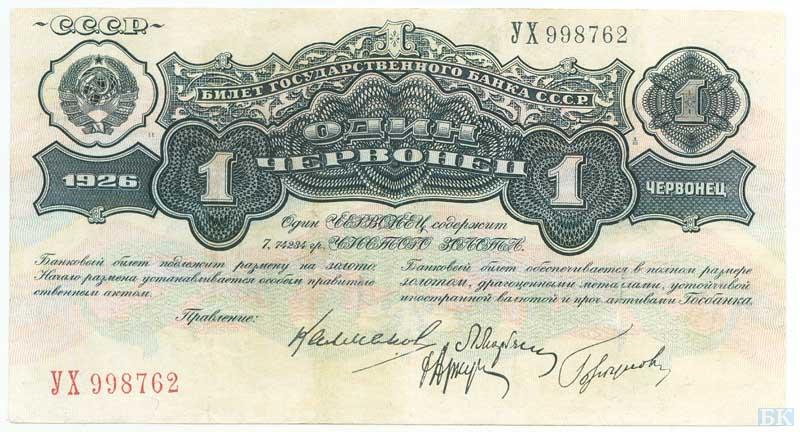 СССР
УХ 998762
1
БИЛЕТ ГОСУДАРСТВЕННОГО БАНКА СССР.
1
ОДИН
ЧЕРВОНЕЦ
1926
1
1
ЧЕРВОНЕЦ
Один ЧЕРВОНЕЦ содержит
7,74234 гр. ЧИСТОГО ЗОЛОТА.
Банковый билет подлежит размену на золото.
Начало размена устанавливается особым правитель
ственным актом.
Банковый билет обеспечивается в полном размере
золотом, драгоценными металлами, устойчивой
иностранной валютой и проч. активами Госбанка.
Правление:
УХ 998762
БК